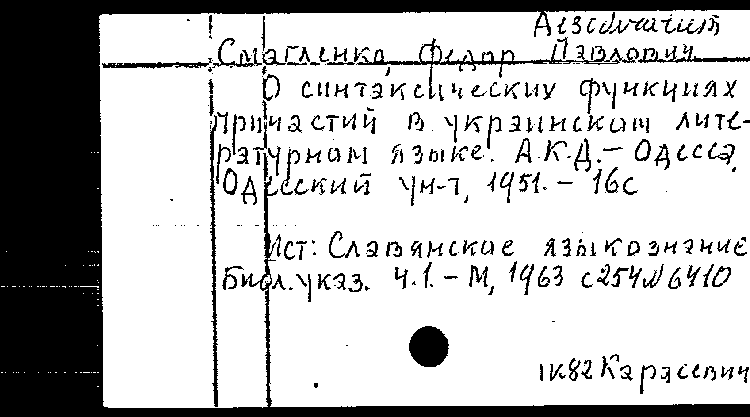 Смагленко, Федор Павлович
О синтаксических функциях
причастий в украинском лите-
ратурном языке. А.К.Д. – Одесса,
Одесский ун-т, 1951. – 16с
Ист: Славянское языкознание
Библ. указ. ч.1. – М, 1963 с254 №6410
1к82 Карасевич